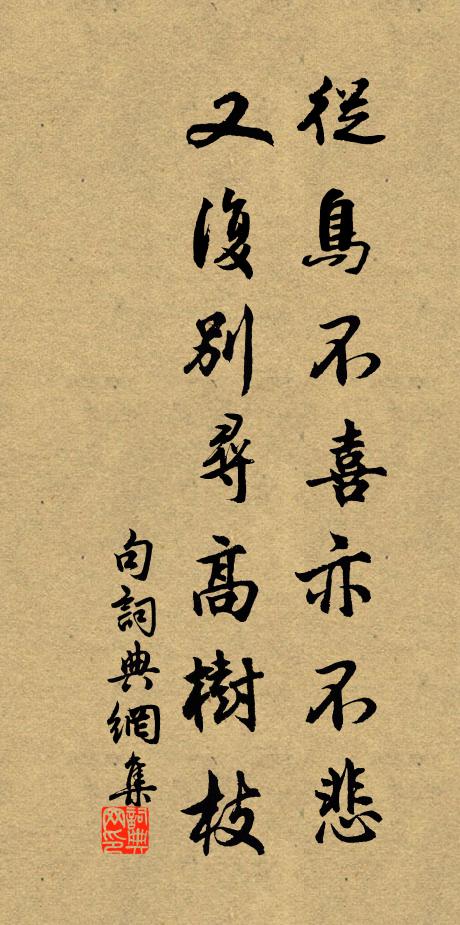 從鳥不喜亦不悲
又復別尋高樹枝
句詞典網集
詞典
网印